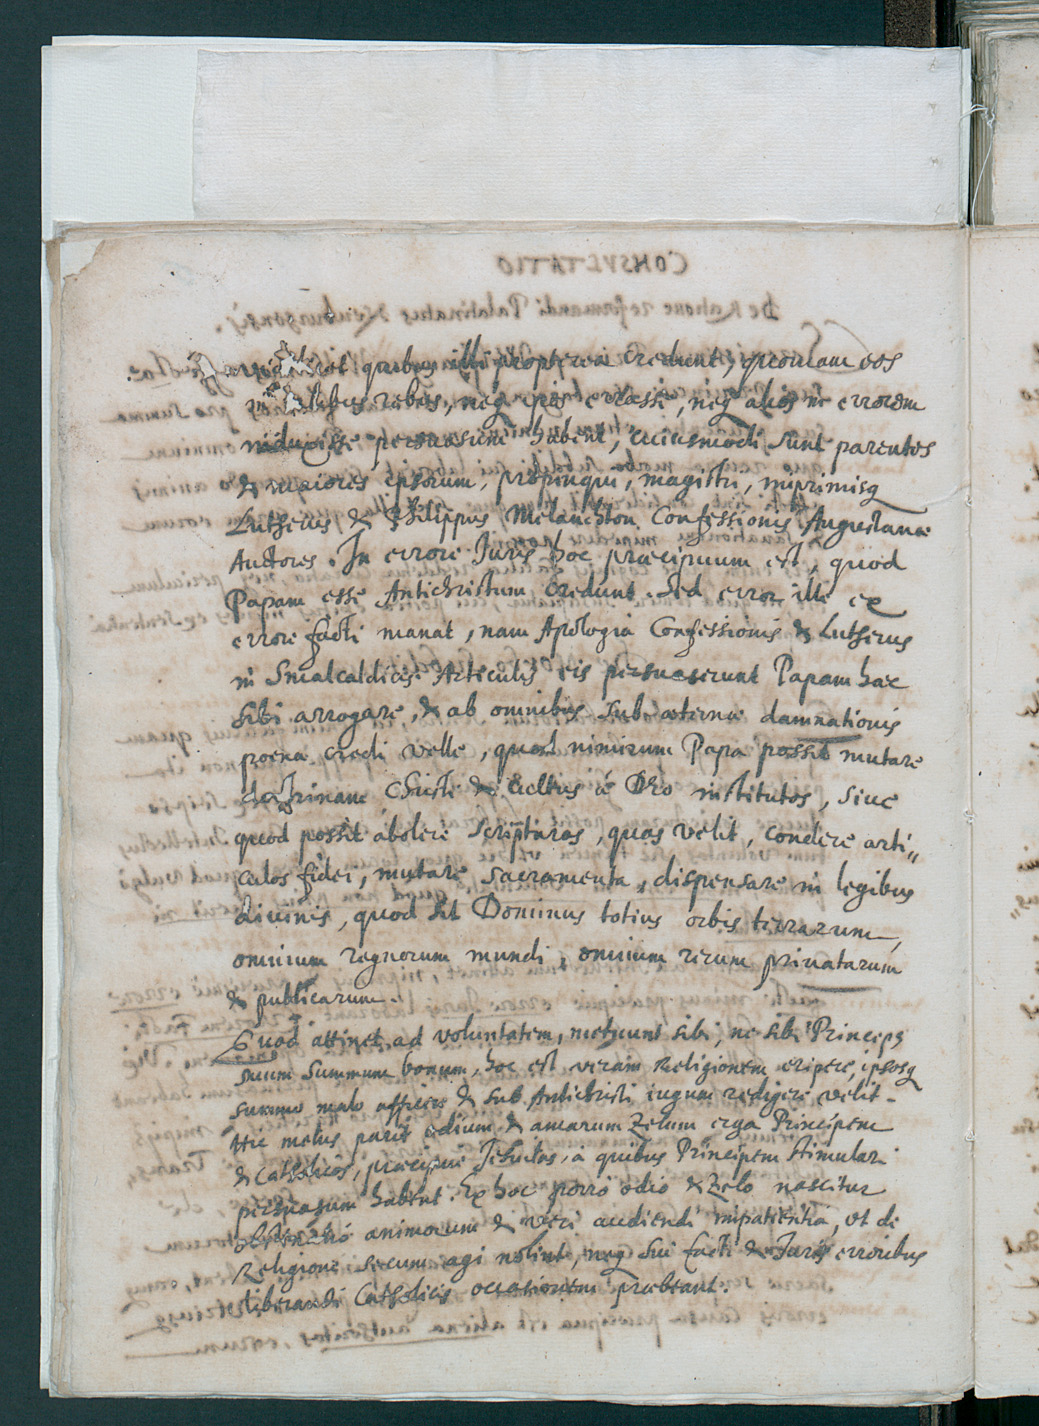 quibus illi propterea credunt, quoniam eos
in talibus rebus, neq ipsos errasse, neq alios in errorem
induxisse persuasum habent, cuiusmodi sunt parentes
& maiores ipsorum, propinqui, magistri, inprimisq
Lutherus & Philippus Melanchton Confessionis Augustanæ
Auctores. In errore Juris hoc præcipuum est, quod
Papam esse Antichristum credunt. Sed error ille ex
errore facti manat, nam Apologia Confessionis & Lutherus
in Smalcaldicis Articulis eis persuaserunt Papam hæc
sibi arrogare, & ab omnibus sub æternæ damnationis
poena credi velle, quod nimirum Papa possit mutare
doctrinam Christi & cultus à Deo institutos, siue
quod possit abolere scripturas, quas velit, condere arti„
culos fidei, mutare sacramenta, dispensare in legibus
diuinis, quod sit Dominus totius orbis terrarum,
omnium regnorum mundi, omnium rerum priuatarum
& publicarum.
Quod attinet ad voluntatem, metuunt sibi, ne sibi Princeps
suum summum bonum, hoc est veram Religionem eripere, ipsosq
summo malo afficere & sub Antichristi iugum redigere velit.
Hic metus parit odium & amarum zelum erga Principem
& Catholicos, præcipuè Jesuitas, à quibus Principem stimulari
persuasum habent. Ex hoc porrò odio & zelo nascitur
obstinatio animorum & veri audiendi inpatientia, ut de
Religione secum agi nolint, neq sui facti & Juris erroribus
liberandi Catholicis occasionem præbeant.